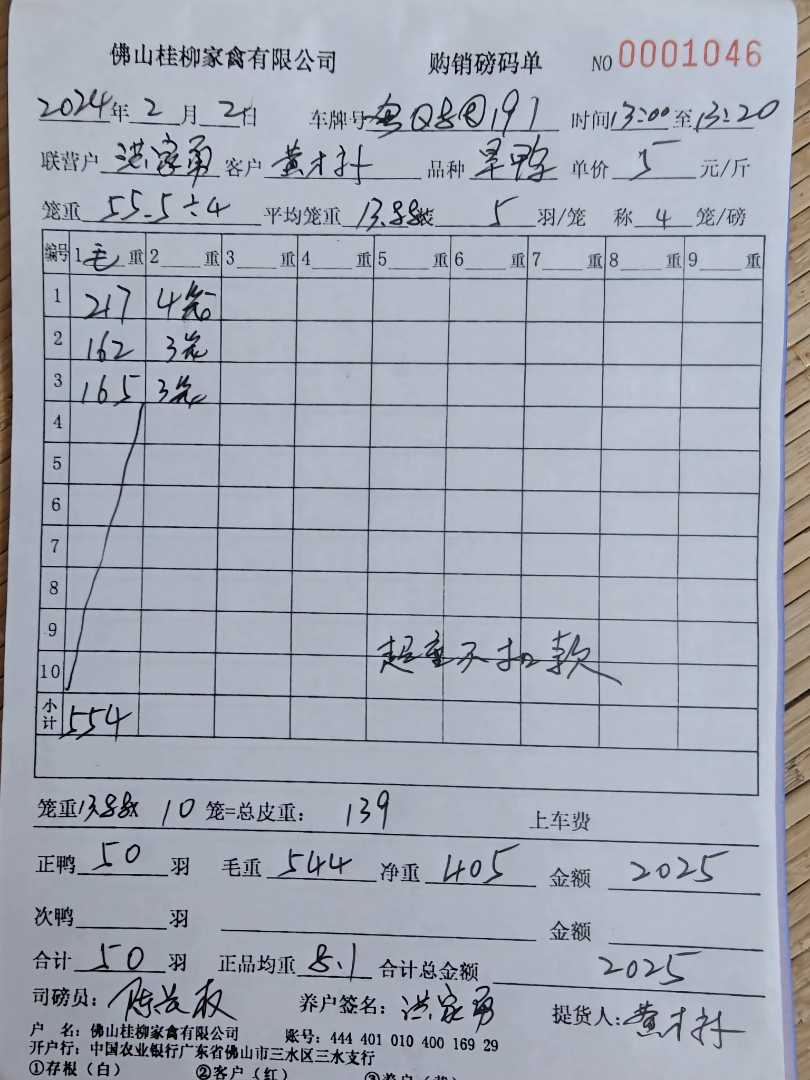 佛山桂柳家禽有限公司 购销磅码单 NO 0001046
2024年2月2日 车牌号 191 时间13:00至13:20
联营户洪家勇 客户黄才 品种旱鸭 单价5元/斤
笼重55.5÷4 平均笼重13.88装5羽/笼 称4笼/磅
编号 1毛重 2重 3重 4重 5重 6重 7重 8重 9重
1 217 4笼
2 162 3笼
3 165 3笼
4
5
6
7
8
9
超重不扣款
10
小计 554
笼重13.88x 10笼=总皮重: 139 上车费
正鸭50羽 毛重544 净重405 金额2025
次鸭 羽 金额
合计50羽 正品均重8.1 合计总金额2025
司磅员: 陈 权 养户签名: 洪家勇 提货人: 黄才
户 名: 佛山桂柳家禽有限公司 账号: 444 401 010 400 169 29
开户行: 中国农业银行广东省佛山市三水区三水支行
①存根(白) ②客户(红)